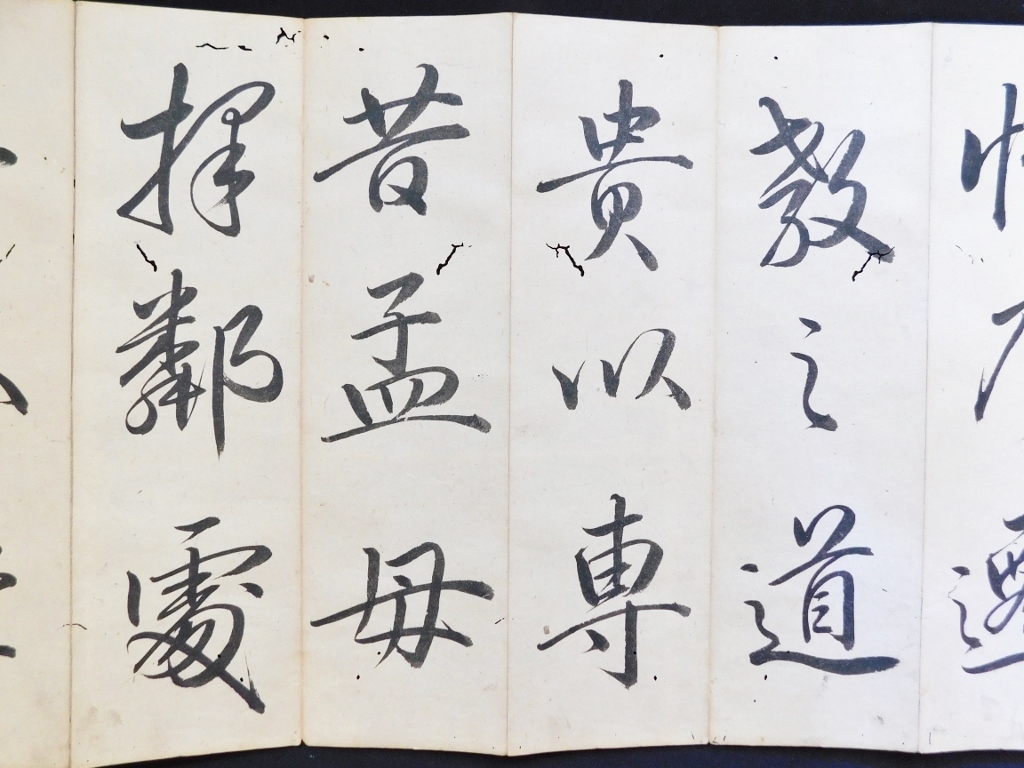 教之道
貴以専
昔孟母
擇鄰處